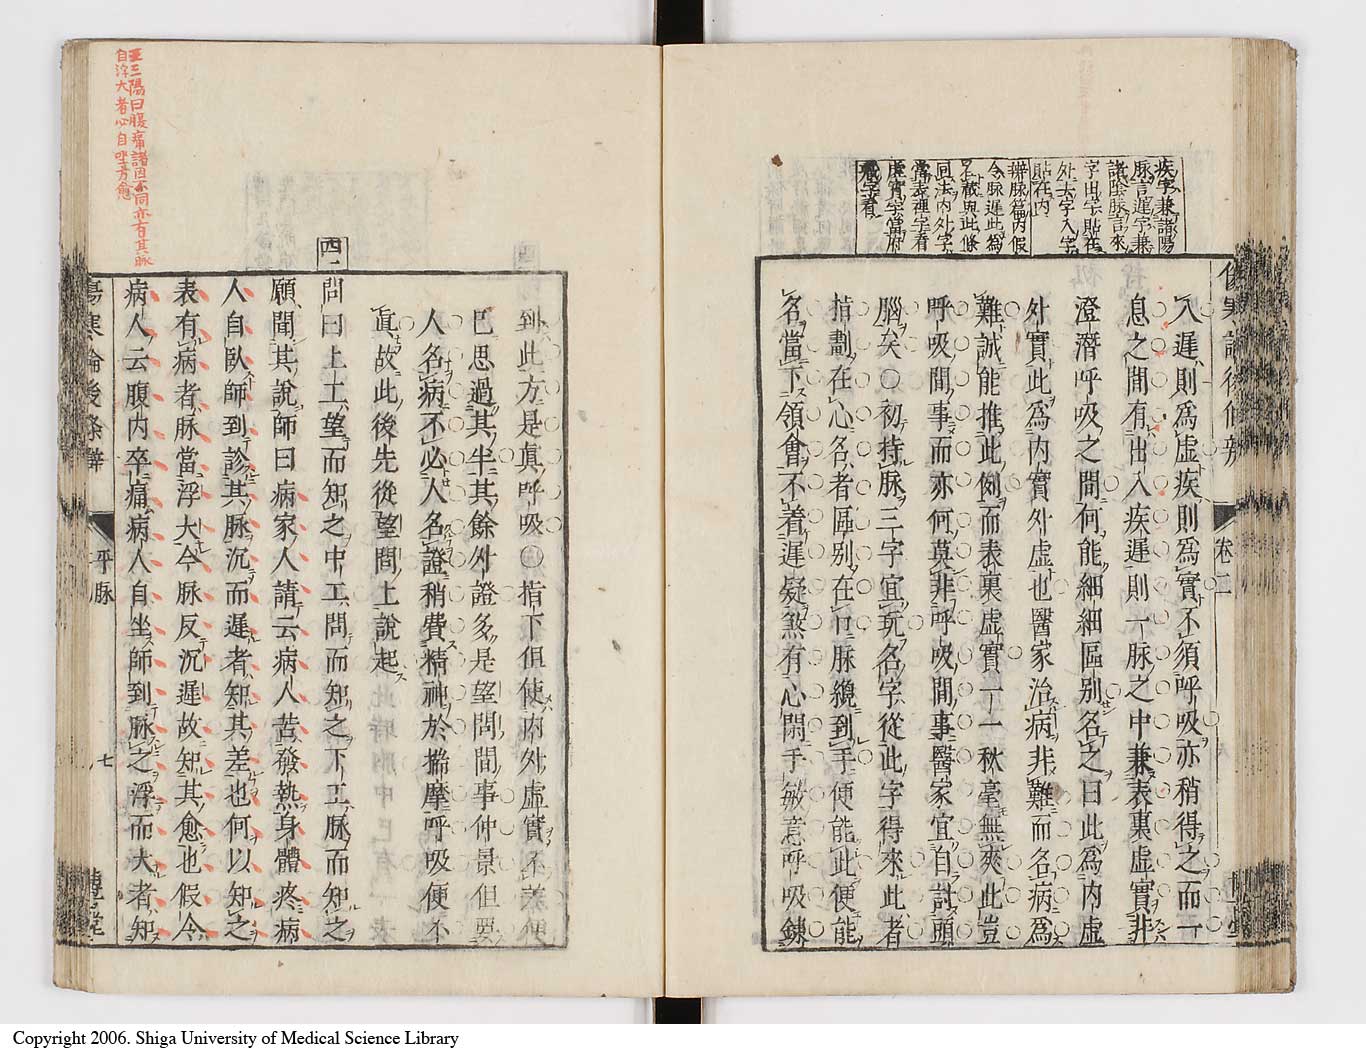 疾字兼諸陽
脉言遲字兼
諸陰脉言來
字出字貼在
外去字入字
貼在内
辨脉篇内假
令脉遲此爲
在藏與此條
同法内外字
當表裡字看
虚實字當府
藏字看
入遲則爲虚疾則爲實不須呼吸亦稍得之而一
息之間有出入疾遲則一脉之中兼表裏虚實非
澄潛呼吸之間何能細細區别名之曰此爲内虚
外實此爲内實外虚也醫家治病非難而名病爲
難誠能推此例而表裏虚實一一秋毫無爽此豈
呼吸間事而亦何莫非呼吸間事醫家宜自討頭
腦矣○初持脉三字宜玩名字從此字得來此者
指劃在心名者區别在口脉纔到手便能此便能
名當下領會不着遲疑煞有心閑手敏意呼吸錬
卷二
到此方是眞呼吸○指下但使内外虚實不差便
已思過其半其餘外證多是望問間事仲景但要
人名病不必人名證稍費精神於揣摩呼吸便不
眞故此後先從望問上説起
四二
問曰上工望而知之中工問而知之下工脉而知之
願聞其説師曰病家人請云病人苦發熱身體疼病
人自臥師到診其脉沉而遲者知其差也何以知之
表有病者脉當浮大今脉反沉遲故知其愈也假令
病人云腹内卒痛病人自坐師到脉之浮而大者知
傷寒論後條辨
平脉
七
王三陽曰腹痛諸因不同亦有其脉
自浮大者必自坐方愈
Copyright 2006. Shiga University of Medical Science Library